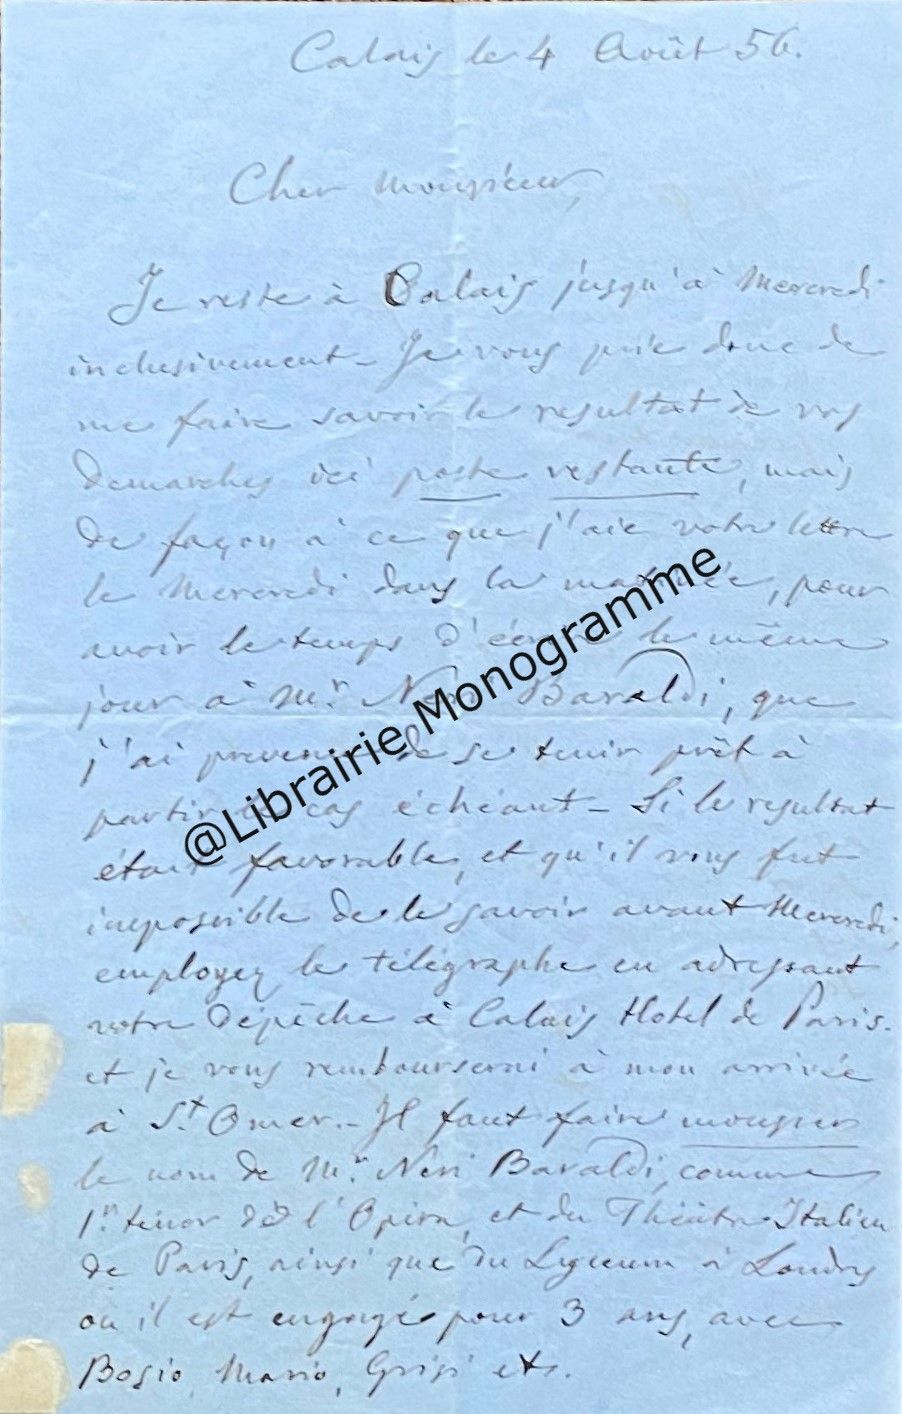 Calais le 4 Août 56.
Cher Monsieur,
Je reste à Calais jusqu'à Mercredi
inclusivement – Je vous prie donc de
me faire savoir le resultat de vos
demarches ici poste restante, mais
de façon à ce que j'aie votre lettre
le Mercredi dans la matinée, pour
avoir le temps d'écrire le même
jour à Mr. Neri Baraldi, que
j'ai prevenu de se tenir prêt à
partir le cas échéant – Si le resultat
était favorable, et qu'il vous fut
impossible de le savoir avant Mercredi,
employez le télégraphe en adressant
votre dépêche à Calais Hotel de Paris.
et je vous rembourserai à mon arrivée
à St. Omer. – Il faut faire mousser
le nom de Mr. Neri Baraldi, comme
1er. ténor de l'Opéra, et du Théâtre Italien
de Paris, ainsi que du Lyceum à Londres
où il est engagé pour 3 ans, avec
Bosio, Mario, Grisi etc.
@Librairie Monogramme